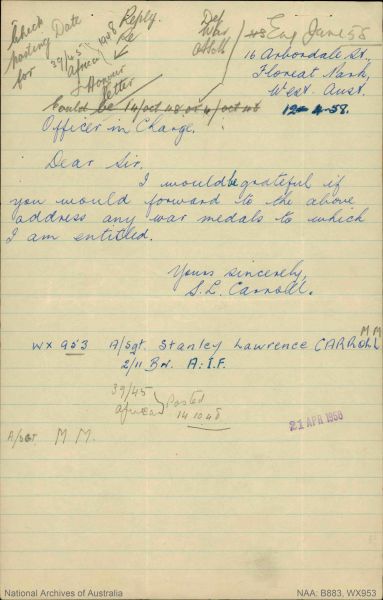 Check
posting Date
for 39/45
Africa
1908
Reply
Re
& Honour
letter
Def
War
Eng June 58
16 Arbordale St,
Floreat Park,
West. Aust.
12-4-58.
Could be 14/Oct 48 or 4/Oct 48
Officer in Charge.
Dear Sir.
I would be grateful if
you would forward to the above
address any war medals to which
I am entitled.
Yours sincerely,
S.L. Carroll.
MM
WX 953 A/Sgt. Stanley Lawrence CARROLL
2/11 Bn. A.I.F.
39/45
Africa } Posted
14.10.48
21 APR 1958
A/Sgt M M.
National Archives of Australia
NAA: B883, WX953